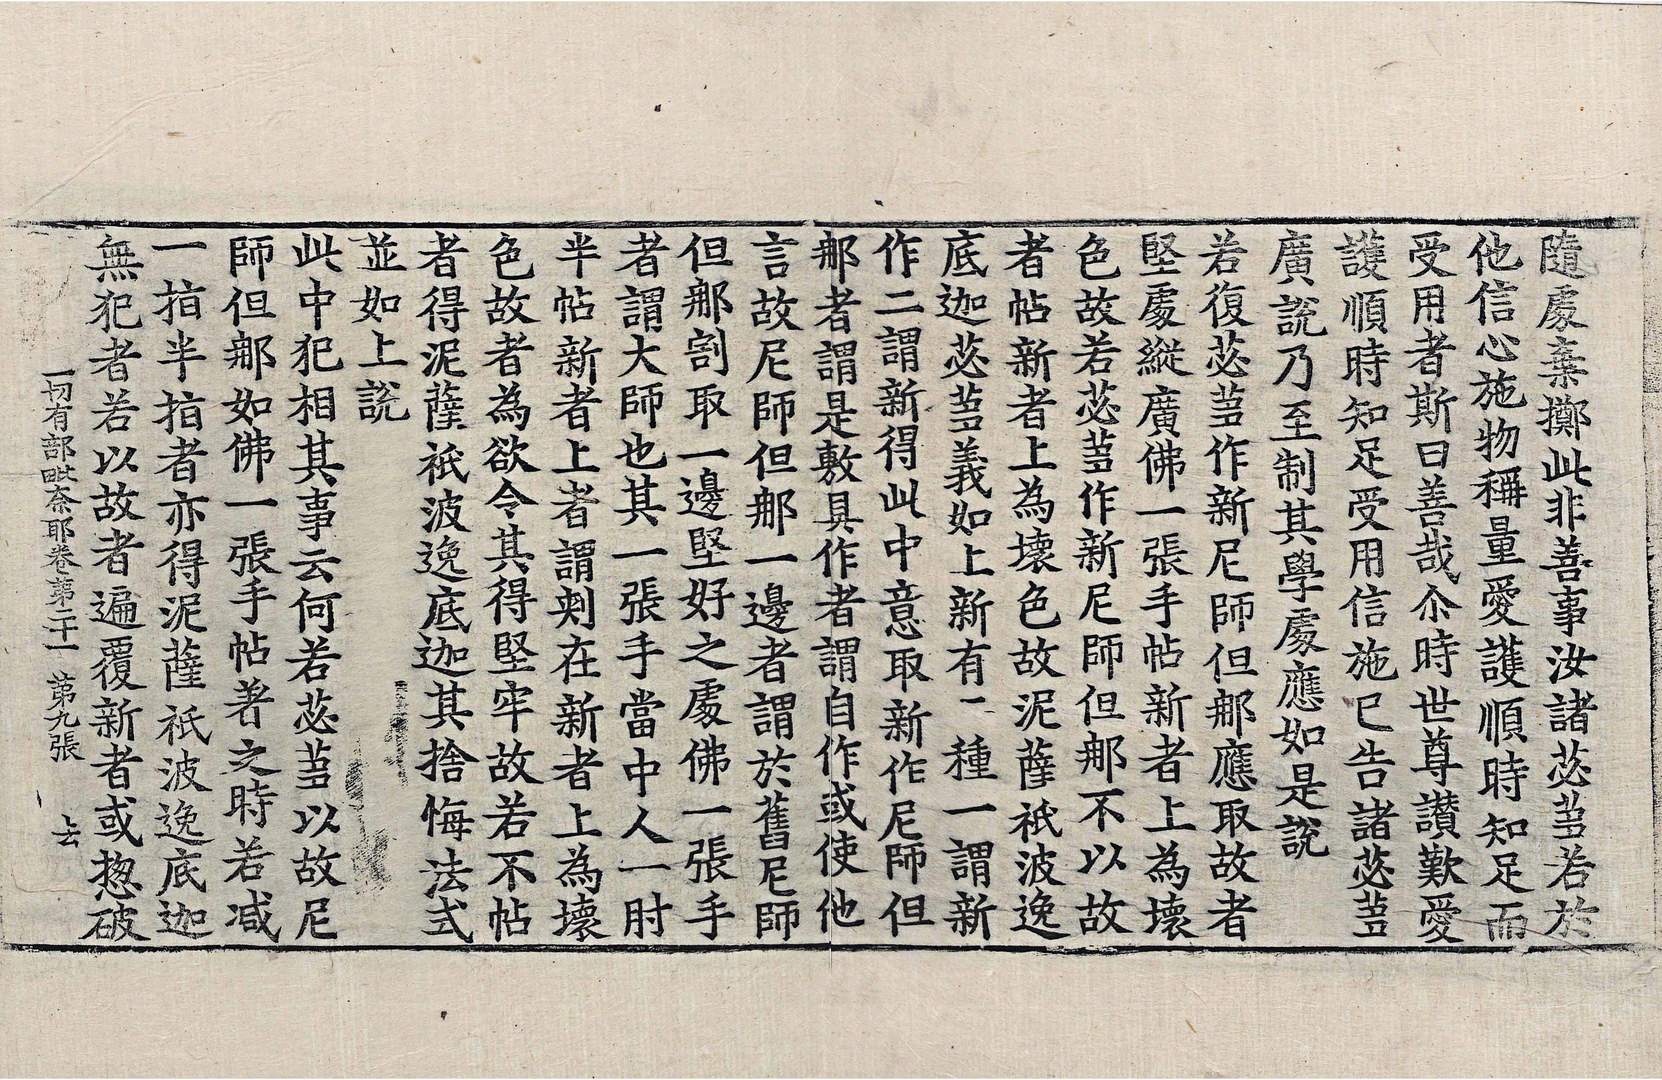 隨處棄擲此非善事汝諸苾芻若於
他信心施物稱量愛護順時知足而
受用者斯曰善哉尒時世尊讃歎愛
護順時知足受用信施巳告諸苾芻
廣說乃至制其學處應如是說
若復苾芻作新尼師但那應取故者
堅處縱廣佛一張手帖新者上為壞
色故若苾芻作新尼師但那不以故
者帖新者上為壞色故泥薩祇波逸
底迦苾芻義如上新有二種一謂新
作二謂新得此中意取新作尼師但
那者謂是敷具作者謂自作或使他
言故尼師但那一邊者謂於舊尼師
但那割取一邊堅好之處佛一張手
者謂大師也其一張手當中人一肘
半帖新者上者謂剌在新者上為壞
色故者為欲令其得堅牢故若不帖
者得泥薩祇波逸底迦其捨悔法式
並如上說
此中犯相其事云何若苾芻以故尼
師但那如佛一張手帖著之時若減
一指半指者亦得泥薩祇波逸底迦
無犯者若以故者遍覆新者或揔破
一切有部毗奈耶卷第二十一 第九張 上去